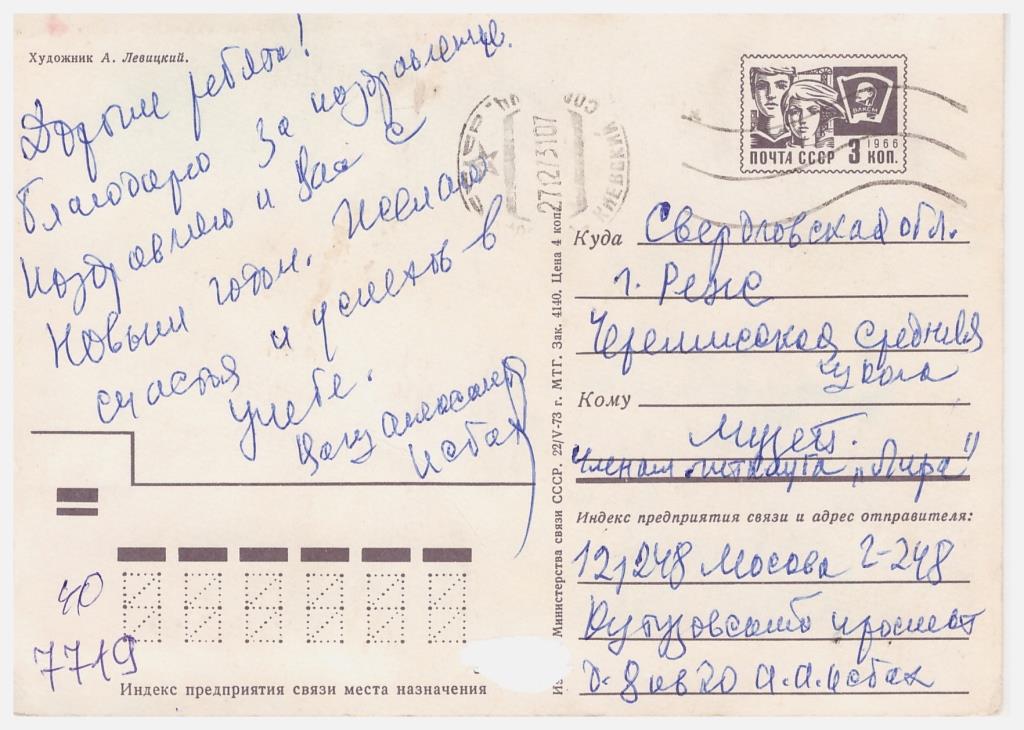 Художник А. Левицкий.
Дорогие ребята!
Благодарю за поздравление.
Поздравляю и Вас с
Новым годом. Желаю
счастья и успехов в
учебе.
Ваш Александр
Исбах
40
7719
Индекс предприятия связи места назначения
27127З107
КИЕВСКИЙ
ВЛКСМ
1966
ПОЧТА СССР 3 КОП.
Министерства связи СССР. 22/V-73 г. МТГ. Зак. 4140. Цена 4 коп.
Куда Свердловская обл.
г. Реж
Черемисская средняя
школа
Кому
Музей.
Членам литклуба „Лира"
Индекс предприятия связи и адрес отправителя:
121248 Москва Г-248
Кутузовский проспект
д. 8 кв 20 А.А. Исбах